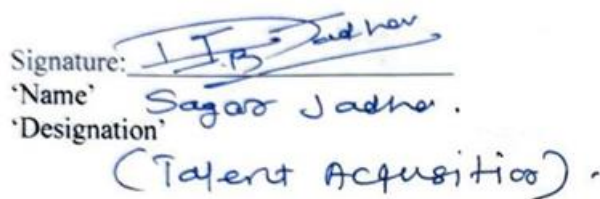 Signature: Jadhav
'Name' Sagar Jadhav.
'Designation'
(Talent Acquisition).